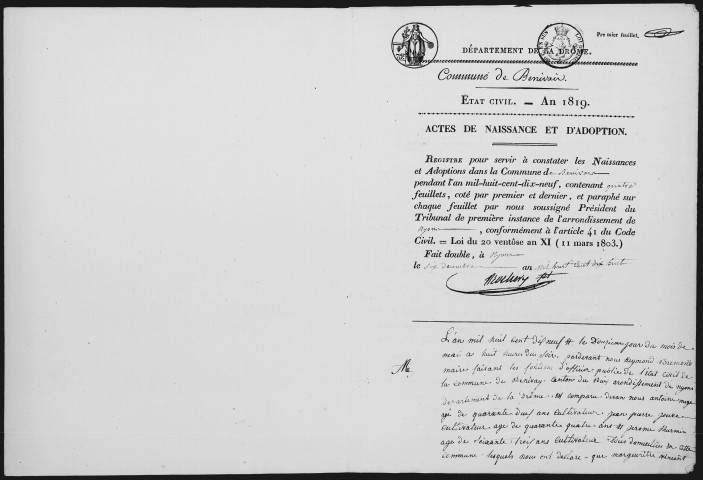 Premier feuillet,
DÉPARTEMENT DE LA DRÔME.
Commune de Benivair
ETAT CIVIL. — AN 1819.
ACTES DE NAISSANCE ET D'ADOPTION.
REGISTRE pour servir à constater les Naissances
et Adoptions dans la Commune de
pendant l'an mil-huit-cent-dix-neuf, contenant quatre
feuillets, coté par premier et dernier, et paraphé sur
chaque feuillet par nous soussigné Président du
Tribunal de première instance de l'arrondissement de
Nyons, conformément à l'article 41 du Code
Civil. = Loi du 20 ventôse an XI (11 mars 1803.)
Fait double, à Nyons
le six décembre an mil huit cent dix huit
L'an mil huit cent dix neuf & le Douzieme jour du mois de
mai a huit heures du soir, pardevant nous Reymond
maire faisant les fonctions d'officier public de l'état civil de
la commune de Benivay canton du Buis arondissement de nyons
departement de la drôme. est comparu devan nous antoine
agé de quarante deux ans cultivateur. jean pierre
cultivateur age de quarante quatre ans & jerome
age de soixante trois ans cultivateur tous domicilies en cette
commune lesquels nous ont declare que marguerite